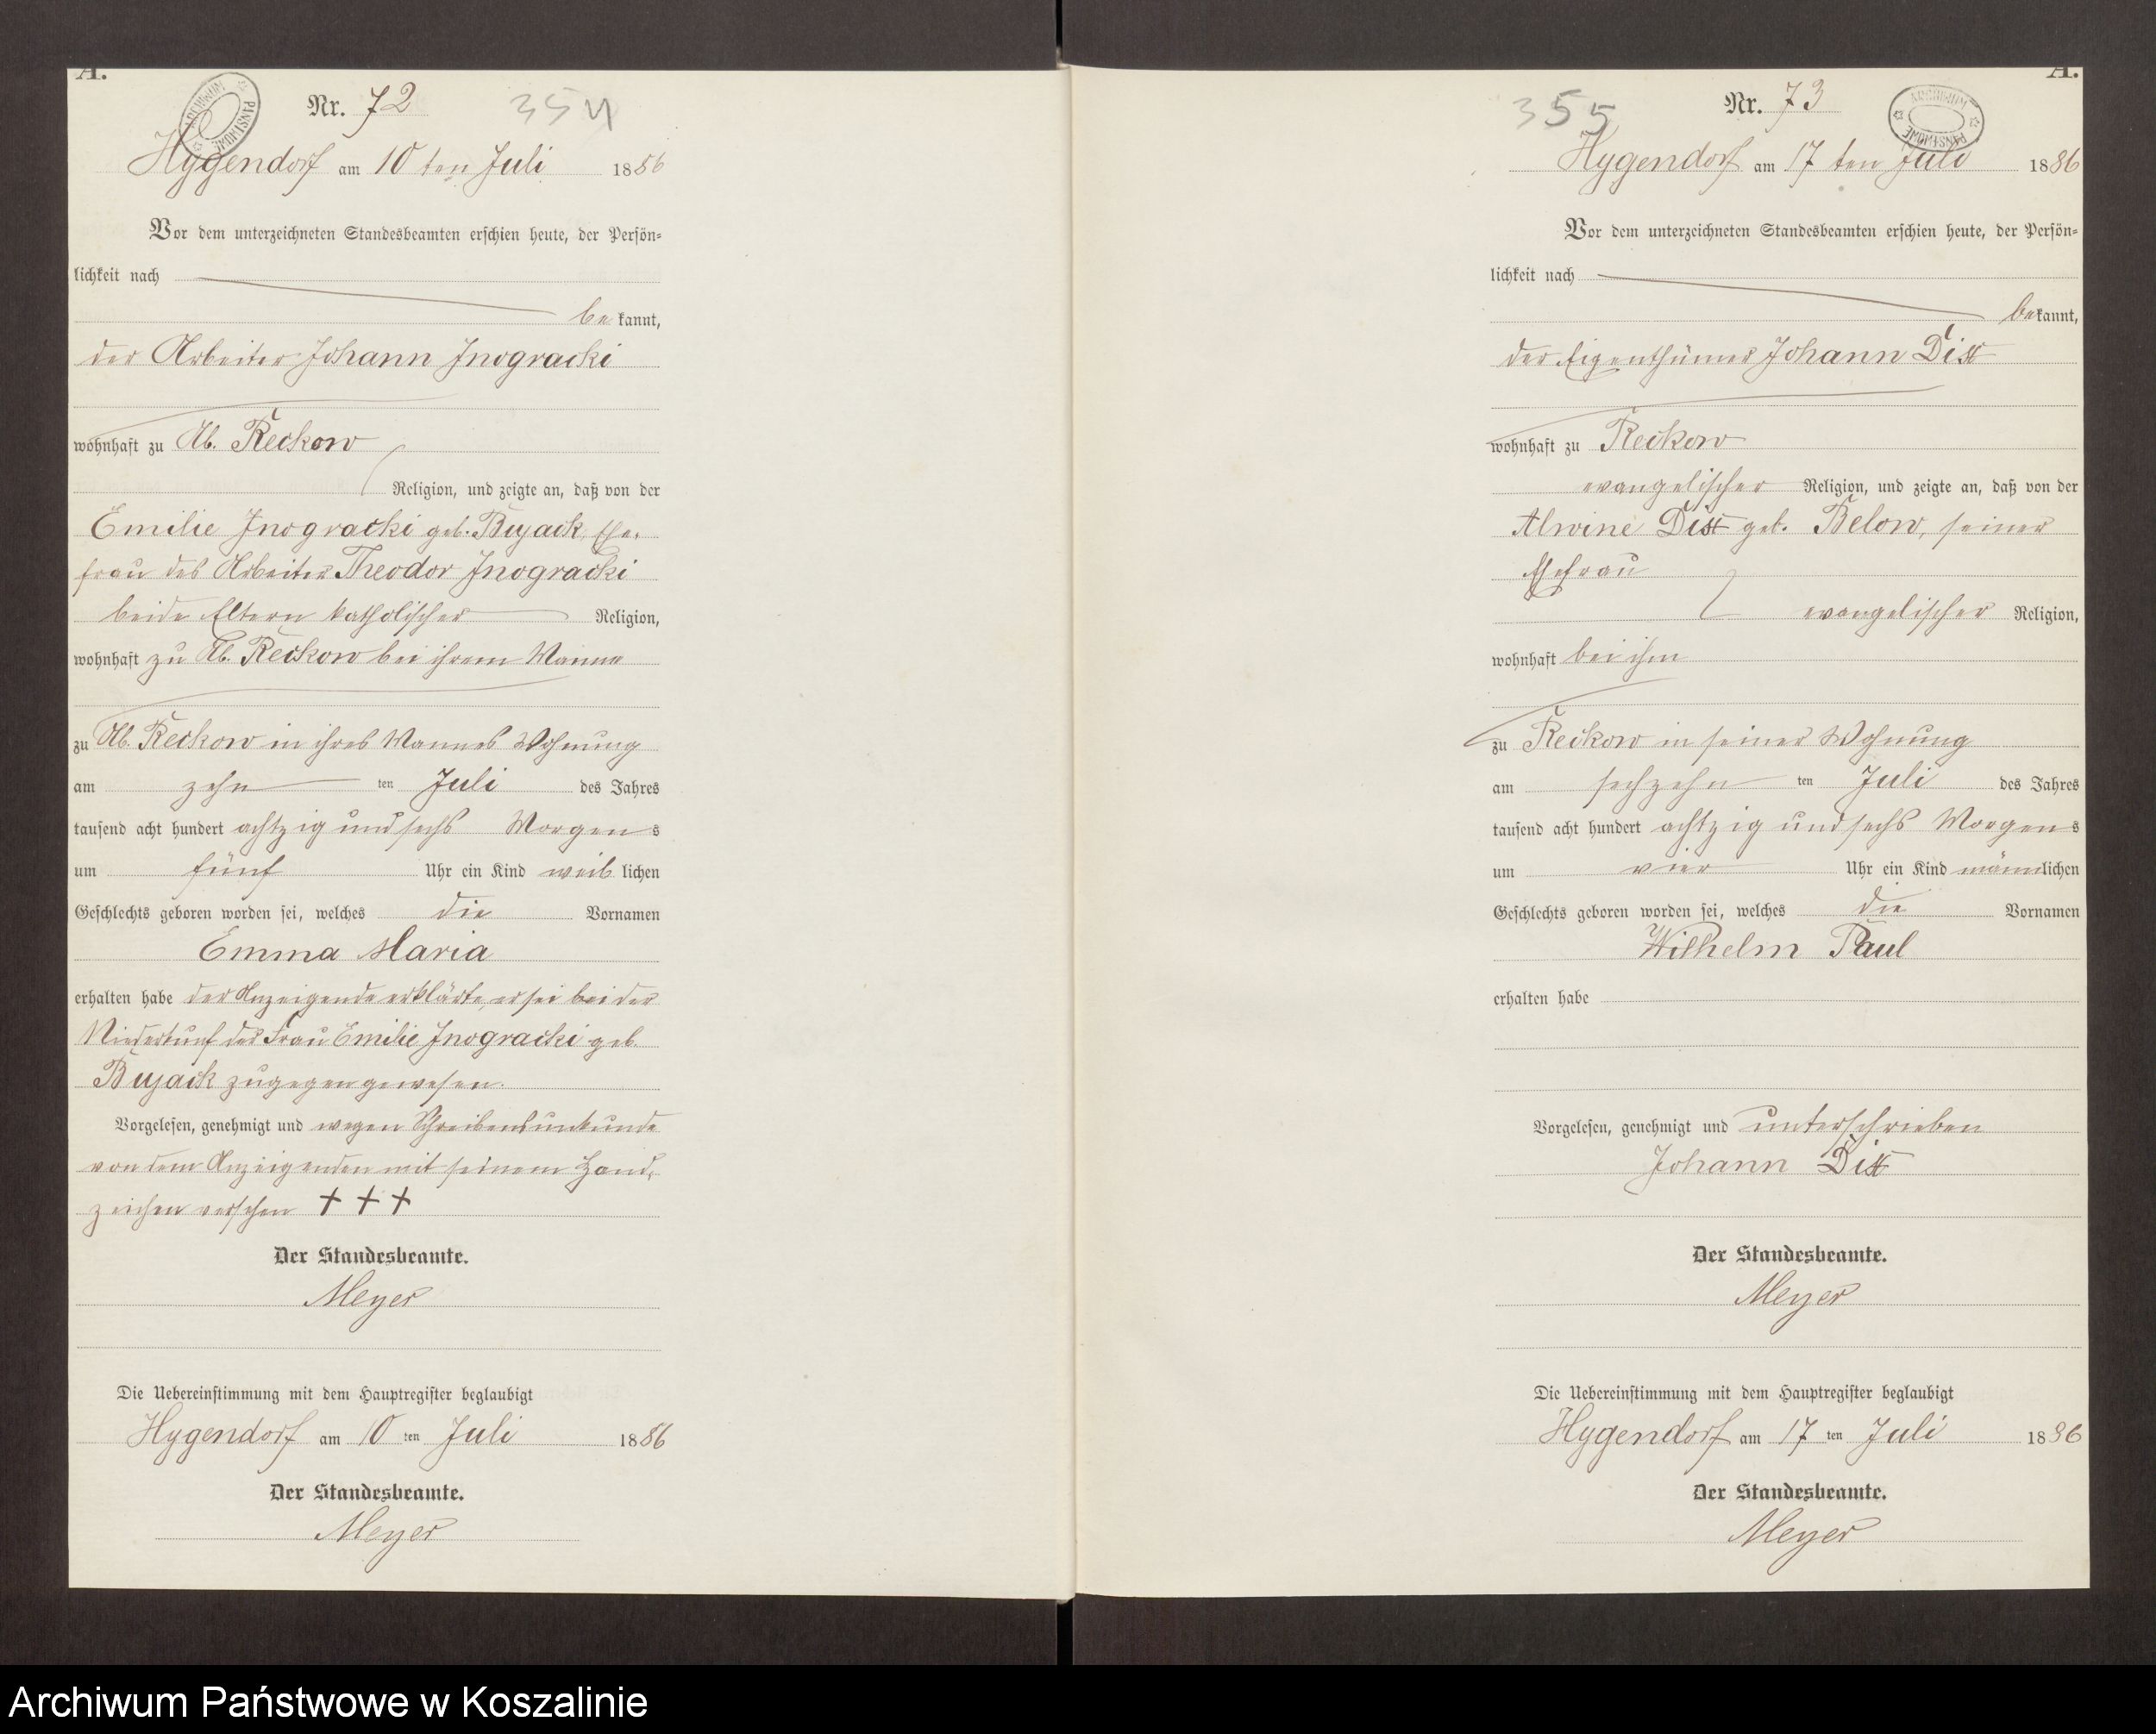 A.
Nr. 72
354
Hygendorf am 10 ten Juli 1886
Vor dem unterzeichneten Standesbeamten erschien heute, der Persön-
lichkeit nach
bekannt,
der Arbeiter Johann Inogracki
wohnhaft zu Ab. Reckow
Religion, und zeigte an, daß von der
Emilie Inogracki geb. Bujack, Ehe-
frau des Arbeiter Theodor Inogracki
beide Eltern katholischer Religion,
wohnhaft zu Ab. Reckow bei ihrem Manne
zu Ab. Reckow in ihres Mannes Wohnung
am zehn ten Juli des Jahres
tausend acht hundert achtzig und sechs Morgens
um fünf Uhr ein Kind weiblichen
Geschlechts geboren worden sei, welches die Vornamen
Emma Maria
erhalten habe der Anzeigende erklärte, er sei bei der
Niederkunf der Frau Emilie Inogracki geb.
Bujack zugegen gewesen.
Vorgelesen, genehmigt und wegen Schreibensunkunde
von dem Anzeigenden mit seinem Hand-
zeichen versehen + + +
Der Standesbeamte.
Meyer
Die Uebereinstimmung mit dem Hauptregister beglaubigt
Hygendorf am 10 ten Juli 1886
Der Standesbeamte.
Meyer
A.
355
Nr. 73
ARCHIWUM PAŃSTWOWE
Hygendorf am 17 ten Juli 1886
Vor dem unterzeichneten Standesbeamten erschien heute, der Persön-
lichkeit nach
bekannt,
der Eigenthümer Johann Dist
wohnhaft zu Reckow
evangelischer Religion, und zeigte an, daß von der
Alwine Dist geb. Below, seiner
Ehefrau
evangelischer Religion,
wohnhaft bei ihm
zu Reckow in seiner Wohnung
am sechzehn ten Juli des Jahres
tausend acht hundert achtzig und sechs Morgens
um vier Uhr ein Kind männlichen
Geschlechts geboren worden sei, welches die Vornamen
Wilhelm Paul
erhalten habe
Vorgelesen, genehmigt und unterschrieben
Johann Dist
Der Standesbeamte.
Meyer
Die Uebereinstimmung mit dem Hauptregister beglaubigt
Hygendorf am 17 ten Juli 1886
Der Standesbeamte.
Meyer
Archiwum Państwowe w Koszalinie